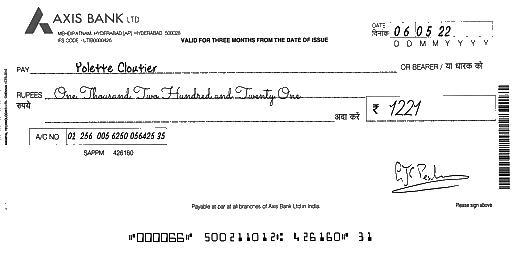 AXIS BANK LTD
MEHDIPATNAM, HYDERABAD [AP] - HYDERABAD 500028
IFS CODE - UTIB0000426
VALID FOR THREE MONTHS FROM THE DATE OF ISSUE
DATE
दिनांक 06 05 22
D D M M Y Y Y Y
PAY Yolette Cloutier OR BEARER / या धारक को
RUPEES One Thousand Two Hundred and Twenty One
रुपये अदा करें ₹ 1221
A/C NO 02 256 005 6250 056425 35
SAPPM 426160
Payable at par at all branches of Axis Bank Ltd in India.
Please sign above
⑈000066⑈ 500211012⑆ 426160⑈ 31